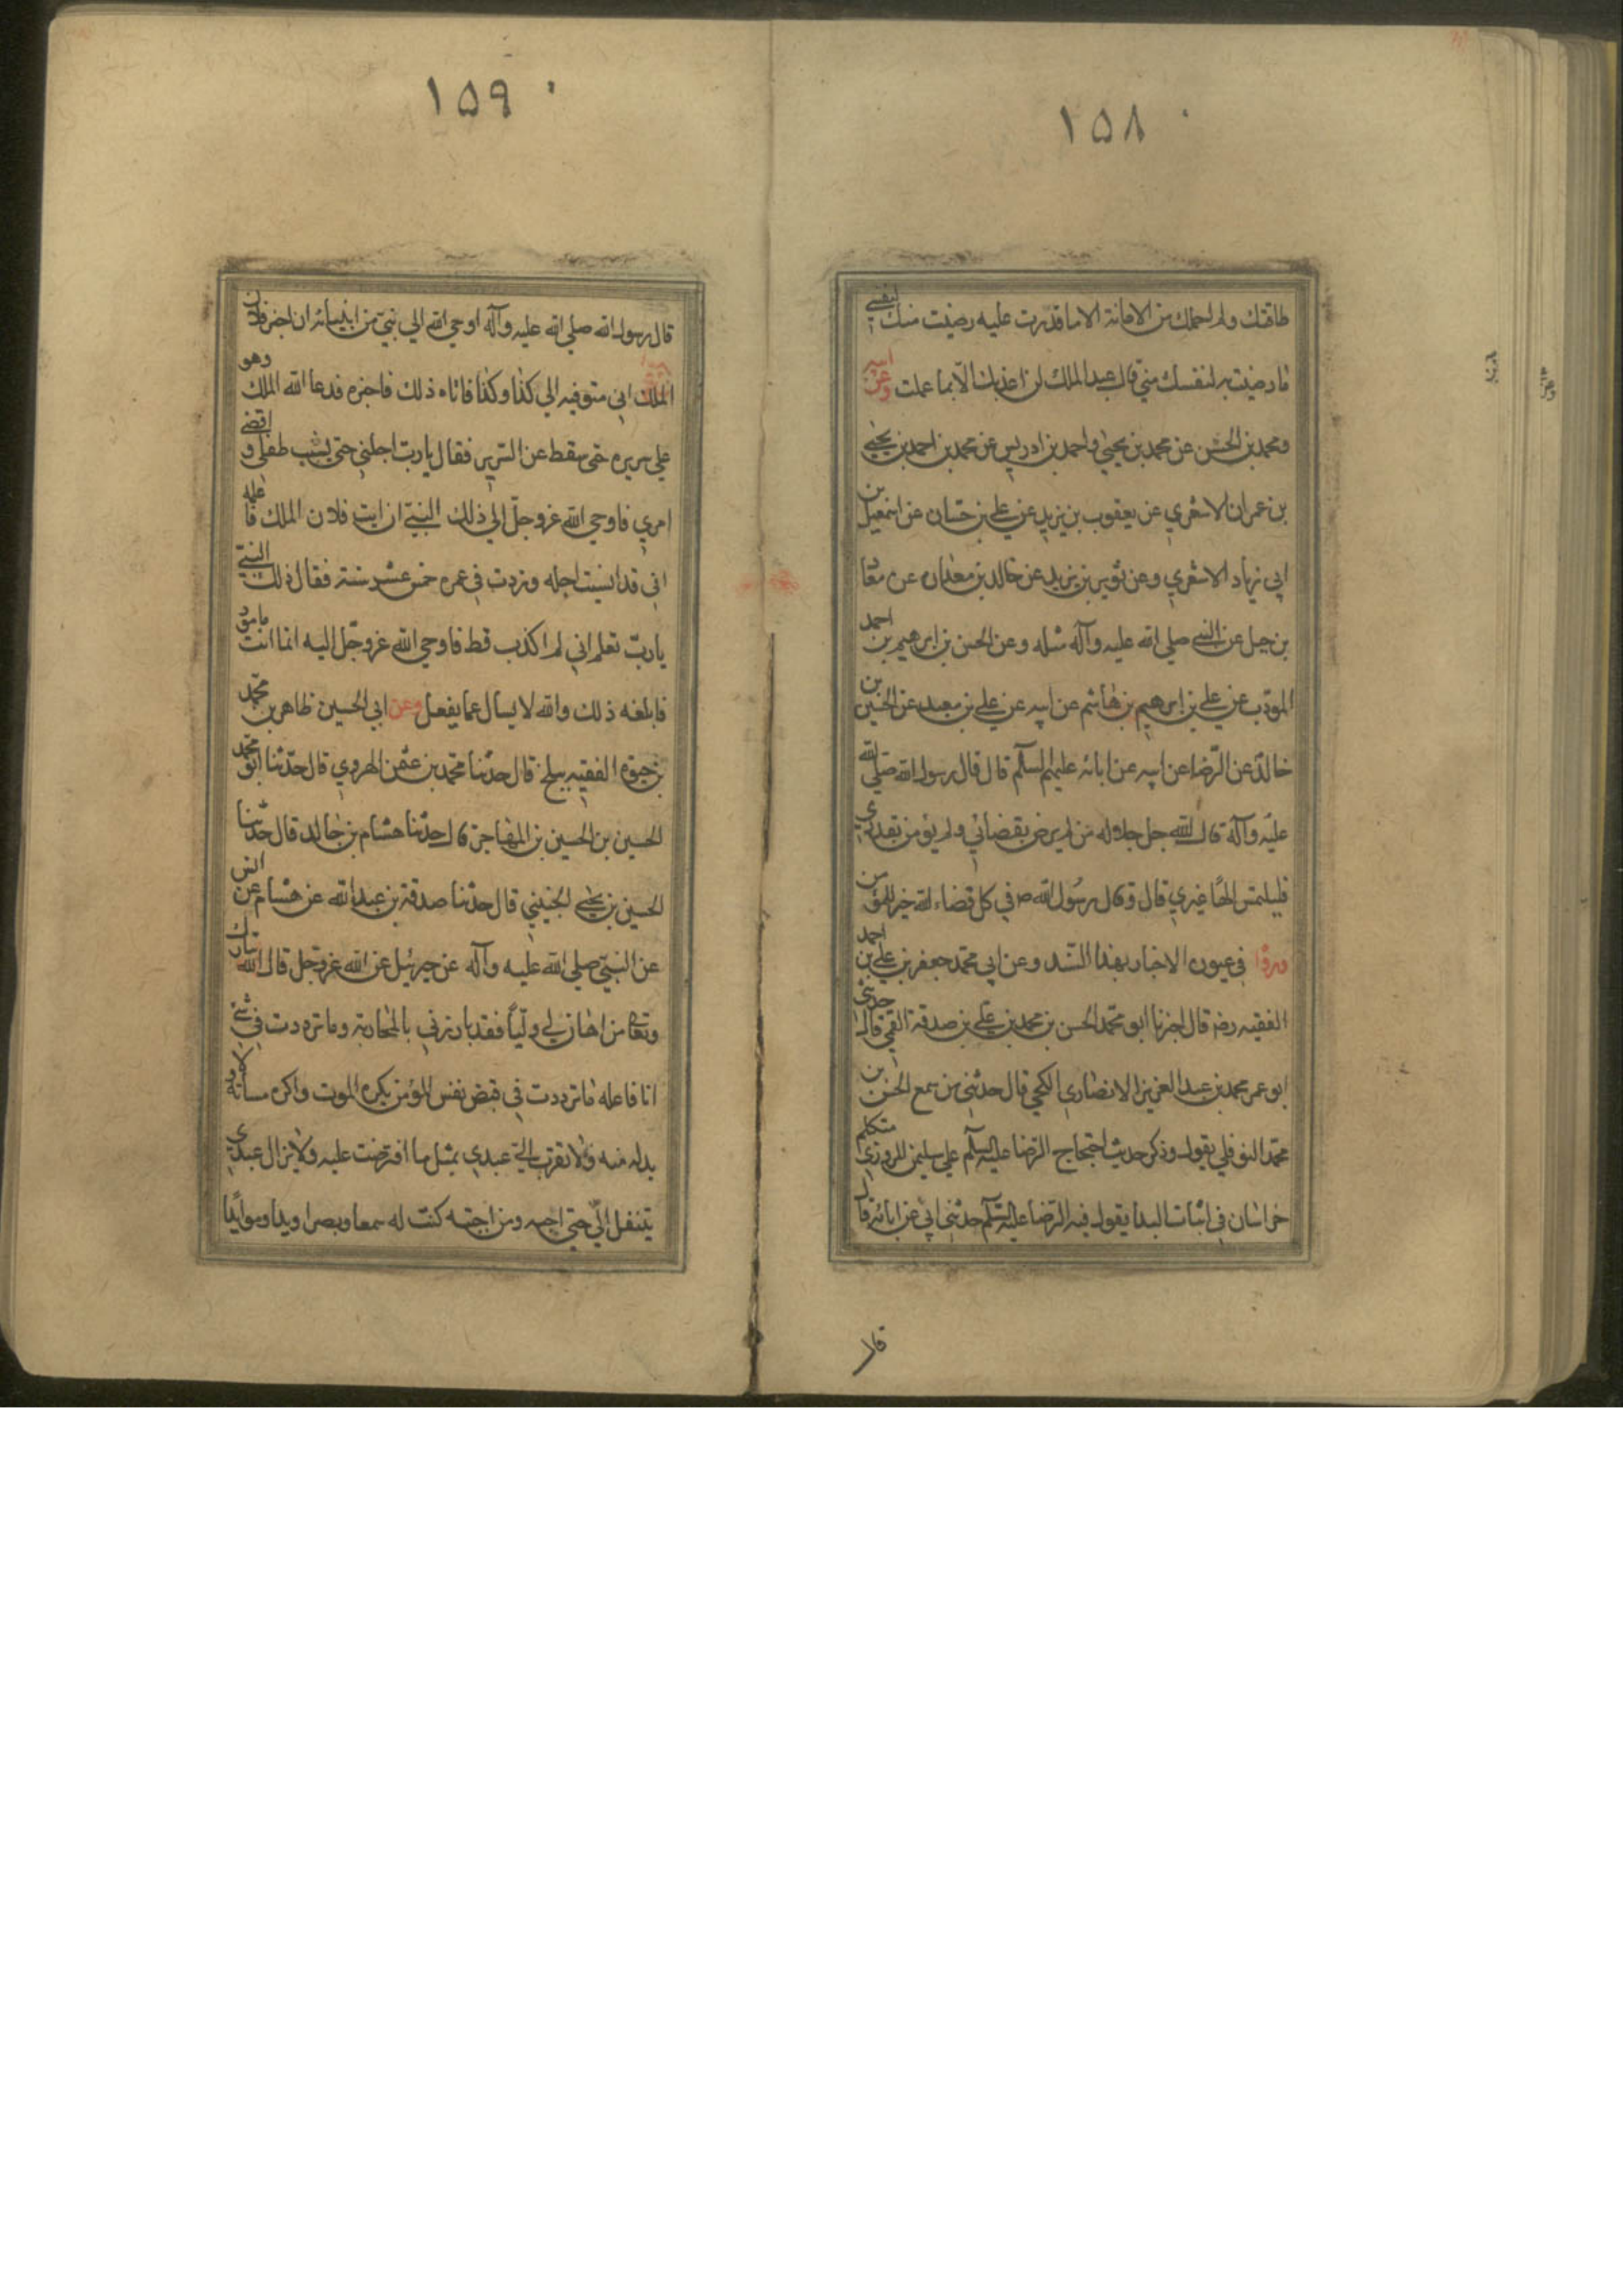 ١٥٨
طاقتك ولم احملك من الامانة الا ما قدرت عليه رضيت منك لنفسي
ما رضيت به لنفسك مني قال عبد الملك لن اعذبك الا بما عملت وعن ابيه
ومحمد بن الحسن عن محمد بن يحيى واحمد بن ادريس عن محمد بن احمد بن يحيى
بن عمران الاشعري عن يعقوب بن يزيد عن علي بن حسان عن اسمعيل بن
ابي زياد الاشعري وعن ثوير بن يزيد عن خالد بن معدان عن معاذ
بن جبل عن النبي صلى الله عليه وآله مثله وعن الحسن بن ابرهيم بن احمد
المؤدب عن علي بن ابرهيم بن هاشم عن ابيه عن علي بن معبد عن الحسين بن
خالد عن الرضا عن ابيه عن ابائه عليهم السلام قال قال رسول الله صلى الله
عليه وآله قال الله جل جلاله من لم يرض بقضائي ولم يؤمن بقدري
فليلتمس الها غيري قال وقال رسول الله ص في كل قضاء لله خير للمؤمن
ورواه في عيون الاخبار بهذا السند وعن ابي محمد جعفر بن علي بن احمد
الفقيه رضه قال اخبرنا ابو محمد الحسن بن محمد بن علي بن صدقة القمي قال حدثني
ابو عمر محمد بن عبد العزيز الانصاري الكجي قال حدثني من سمع الحسن بن
محمد النوفلي يقول وذكر حديث احتجاج الرضا عليه السلم على سليمن المروزي متكلم
خراسان في اثبات البدا يقول فيه الرضا عليه السلم حدثني ابي عن ابائه قال
قال
١٥٩
قال رسول الله صلى الله عليه وآله اوحى الله الى نبي من انبيائه ان اخبر فلان
الملك اني متوفيه الى كذا وكذا فاتاه ذلك فاخبره فدعا الله الملك وهو
على سريره حتى سقط عن السرير فقال يا رب اجلني حتى يشب طفلي واقضي
امري فاوحى الله عز وجل الى ذلك النبي ان ايت فلان الملك فاعلمه
اني قد انسيت اجله وزدت في عمره خمس عشر سنة فقال ذلك النبي
يا رب تعلم اني لم اكذب قط فاوحى الله عز وجل اليه انما انت مامور
فابلغه ذلك والله لا يسال عما يفعل وعن ابي الحسين طاهر بن محمد
بن حيوة الفقيه ببلخ قال حدثنا محمد بن عثمن الهروي قال حدثنا ابو محمد
الحسين بن الحسين بن المهاجر قال حدثنا هشام بن خالد قال حدثنا
الحسين بن يحيى قال حدثنا صدقة بن عبد الله عن هشام عن انس
عن النبي صلى الله عليه وآله عن جبرئيل عن الله عز وجل قال الله تبارك
وتعالى من اهان لي وليا فقد بارزني بالمحاربة وما ترددت في شئ
انا فاعله ما ترددت في قبض نفس المؤمن يكره الموت واكره مسائته ولا
بد له منه ولا تقرب الي عبدي بمثل ما افترضت عليه ولا يزال عبدي
يتنفل الي حتى احبه ومن احببته كنت له سمعا وبصرا ويدا ومؤيدا